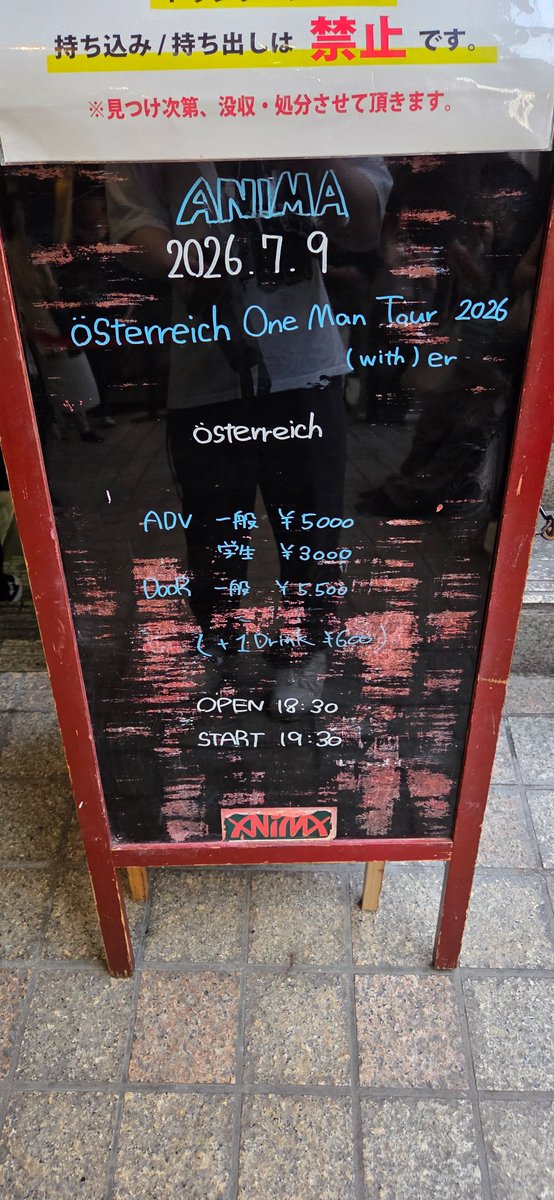 持ち込み/持ち出しは 禁止 です。
※見つけ次第、没収・処分させて頂きます。
ANIMA
2026.7.9
österreich One Man Tour 2026
(with) er
österreich
ADV 一般 ¥5000
学生 ¥3000
DOOR 一般 ¥5.500
(+1Drink ¥600)
OPEN 18:30
START 19:30
ANIMA